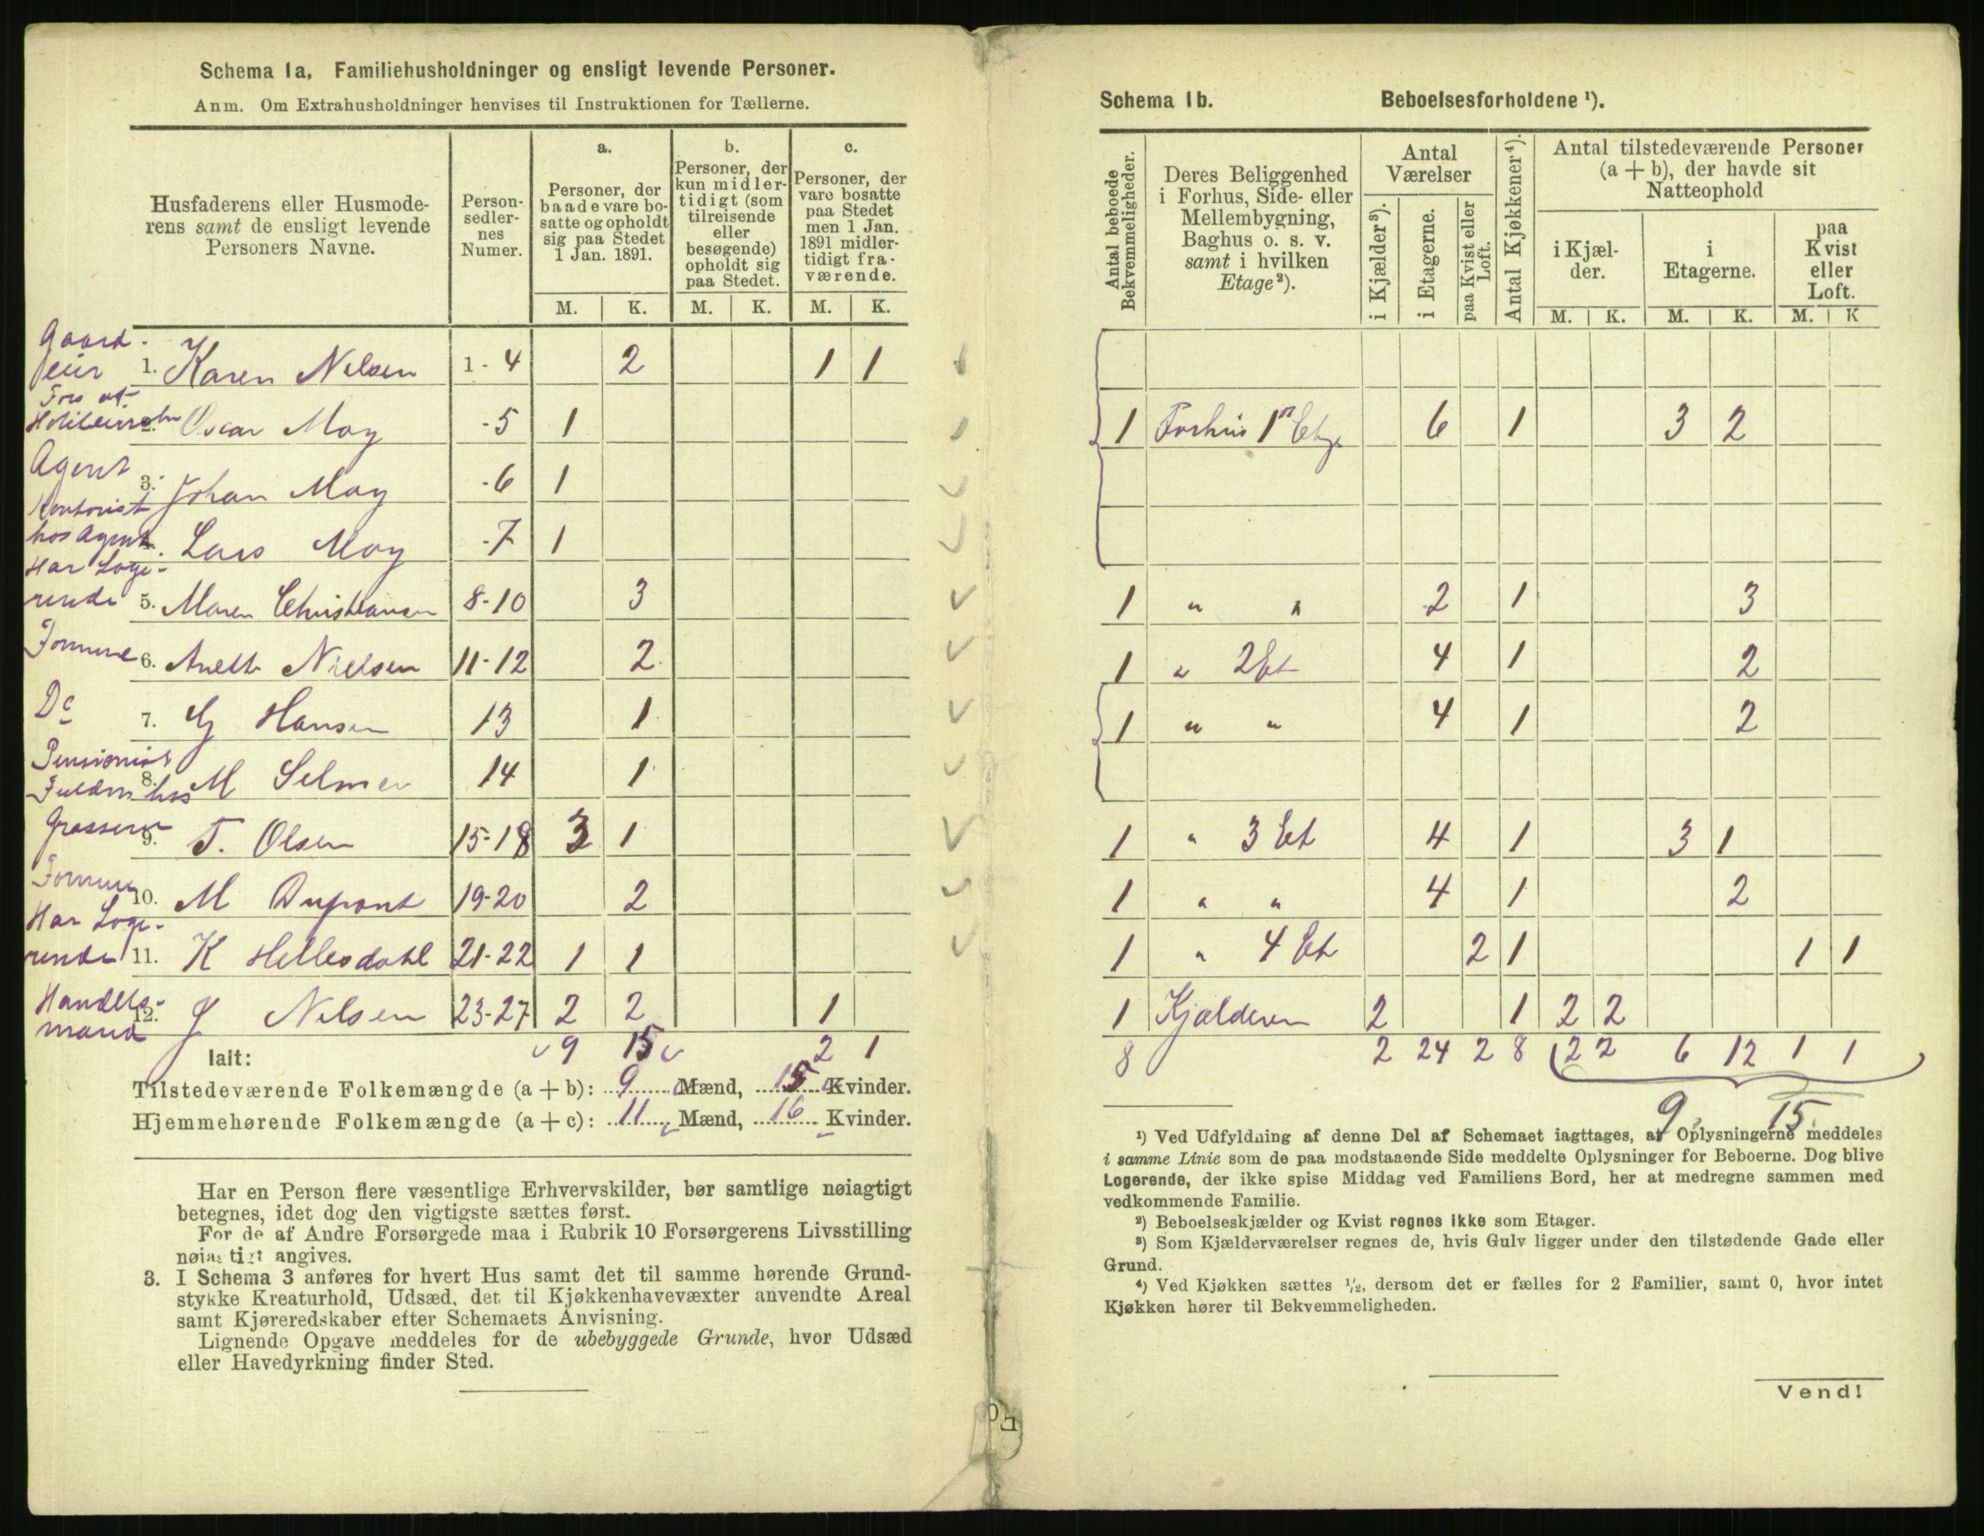 Schema 1a, Familiehusholdninger og ensligt levende Personer.
Anm. Om Extrahusholdninger henvises til Instruktionen for Tællerne.
Husfaderens eller Husmoderens samt de ensligt levende Personers Navne.
Person-sedler-nes Numer.
a. Personer, der baade vare bosatte og opholdt sig paa Stedet 1 Jan. 1891.
b. Personer, der kun midlertidigt (som tilreisende eller besøgende) opholdt sig paa Stedet.
c. Personer, der vare bosatte paa Stedet men 1 Jan. 1891 midlertidigt fraværende.
M. K. M. K. M. K.
Gaardeier 1. Karen Nilsen 1-4 2 1 1
2. Oscar May -5 1
Agent 3. Johan May -6 1
Kontorist hos Agent 4. Lars May -7 1
Har Logerende 5. Maren Christiansen 8-10 3
Formue 6. Anette Nielsen 11-12 2
Do 7. G Hansen 13 1
Pensionist 8. M Selmer 14 1
Grosserer 9. T. Olsen 15-18 3 1
Formue 10. M Dupont 19-20 2
Har Logerende 11. K Hellesdahl 21-22 1 1
Handelsmand 12. J Nilsen 23-27 2 2 1
Ialt: 9 15 2 1
Tilstedeværende Folkemængde (a + b): 9 Mænd, 15 Kvinder.
Hjemmehørende Folkemængde (a + c): 11 Mænd, 16 Kvinder.
Har en Person flere væsentlige Erhvervskilder, bør samtlige nøiagtigt
betegnes, idet dog den vigtigste sættes først.
For de af Andre Forsørgede maa i Rubrik 10 Forsørgerens Livsstilling
nøiagtigt angives.
3. I Schema 3 anføres for hvert Hus samt det til samme hørende Grund-
stykke Kreaturhold, Udsæd, det til Kjøkkenhavevæxter anvendte Areal
samt Kjøreredskaber efter Schemaets Anvisning.
Lignende Opgave meddeles for de ubebyggede Grunde, hvor Udsæd
eller Havedyrkning finder Sted.
Schema 1b. Beboelsesforholdene ¹).
Antal beboede Bekvemmeligheder.
Deres Beliggenhed i Forhus, Side- eller Mellembygning, Baghus o. s. v. samt i hvilken Etage ²).
Antal Værelser
i Kjælder ³).
i Etagerne.
paa Kvist eller Loft.
Antal Kjøkkener ⁴).
Antal tilstedeværende Personer (a + b), der havde sit Natteophold
i Kjælder.
i Etagerne.
paa Kvist eller Loft.
M. K. M. K. M. K
1 Forhus 1ⁿ Etge 6 1 3 2
1 " " 2 1 3
1 " 2 Et 4 1 2
1 " " 4 1 2
1 " 3 Et 4 1 3 1
1 " " 4 1 2
1 " 4 Et 2 1 1 1
1 Kjælderen 2 1 2 2
8 2 24 2 8 2 2 6 12 1 1
9 15
¹) Ved Udfyldning af denne Del af Schemaet iagttages, at Oplysningerne meddeles
i samme Linie som de paa modstaaende Side meddelte Oplysninger for Beboerne. Dog blive
Logerende, der ikke spise Middag ved Familiens Bord, her at medregne sammen med
vedkommende Familie.
²) Beboelseskjælder og Kvist regnes ikke som Etager.
³) Som Kjælderværelser regnes de, hvis Gulv ligger under den tilstødende Gade eller
Grund.
⁴) Ved Kjøkken sættes ½, dersom det er fælles for 2 Familier, samt 0, hvor intet
Kjøkken hører til Bekvemmeligheden.
Vend!